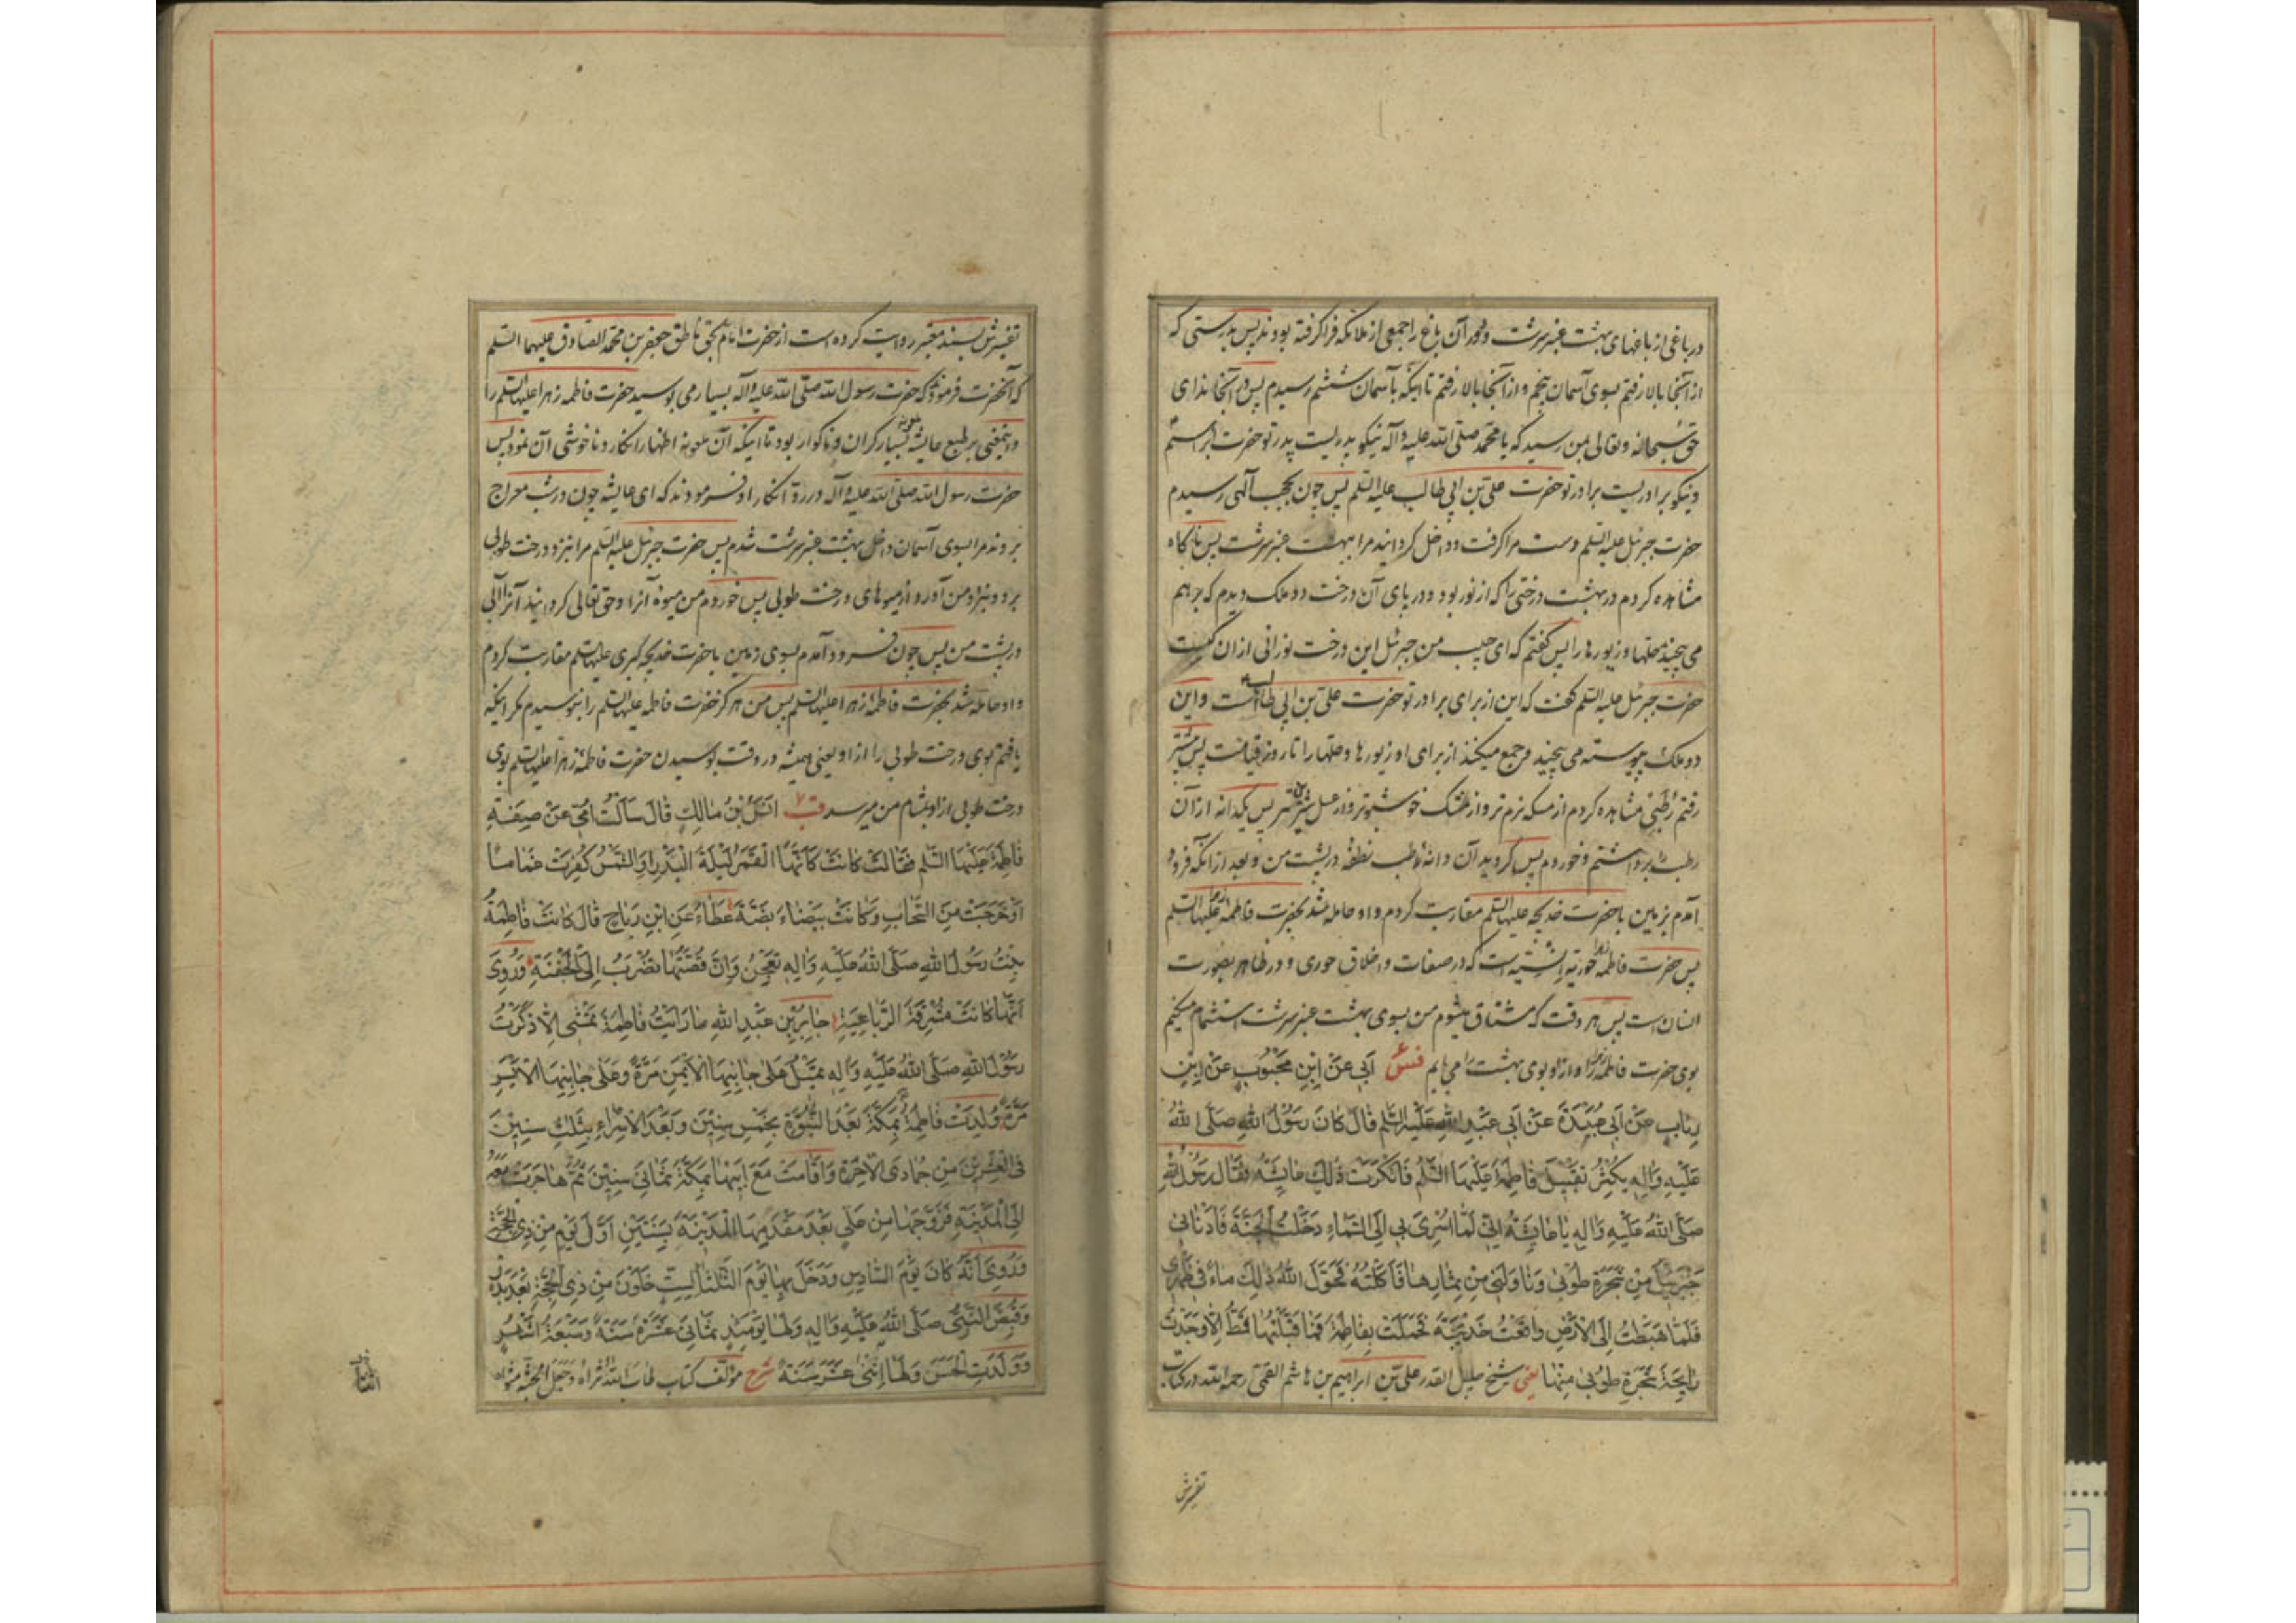 در باغی از باغهای بهشت عنبر سرشت و دور آن باغ را جمعی از ملائکه فرا گرفته بودند پس بدرستی که
از آنجا بالا رفتم بسوی آسمان پنجم و از آنجا بالا رفتم تا اینکه بآسمان ششم رسیدم پس در آنجا ندای
حق سبحانه وتعالی بمن رسید که یا محمد صلی الله علیه وآله نیکو پدریست پدر تو حضرت ابراهیم
و نیکو برادریست برادر تو حضرت علی بن ابی طالب علیه السلم پس چون بحجب الهی رسیدم
حضرت جبرئیل علیه السلم دست مرا گرفت و داخل گردانید مرا ببهشت عنبر سرشت پس ناگاه
مشاهده کردم در بهشت درختی را که از نور بود و در پای آن درخت دو ملک دیدم که بر هم
می پیچیدند حلتها و زیورها را پس گفتم که ای حبیب من جبرئیل این درخت نورانی از ان کیست
حضرت جبرئیل علیه السلم گفت که این از برای برادر تو حضرت علی بن ابی طالب است و این
دو ملک پیوسته می پیچند و جمع میکنند از برای او زیورها و حلتها را تا روز قیامت پس پیشتر
رفتم رطبی مشاهده کردم از مسکه نرم تر و از مشک خوشبوتر و از عسل شیرین تر پس یکدانه از آن
رطب برداشتم و خوردم پس گردید آن دانه رطب نطفه در پشت من و بعد از آنکه فرود
آمدم بزمین با حضرت خدیجه علیها السلم مقاربت کردم و او حامله شد بحضرت فاطمه زهرا علیها السلم
پس حضرت فاطمه زهرا حوریه انسیه است که در صفات و اخلاق حوری و در ظاهر بصورت
انسان است پس هر وقت که مشتاق میشوم من بسوی بهشت عنبر سرشت استشمام میکنم
بوی حضرت فاطمه زهرا و از او بوی بهشت را می یابم فس ابی عن ابن محبوب عن ابن
رئاب عن ابی عبیدة عن ابی عبد الله علیه السلم قال کان رسول الله صلی الله
علیه واله یکثر تقبیل فاطمة علیها السلم فانکرت ذلک عائشة فقال رسول الله
صلی الله علیه واله یا عائشة انی لما اسری بی الی السماء دخلت الجنة فادنانی
جبرئیل من شجرة طوبی وناولنی من ثمارها فاکلته فحول الله ذلک ماء فی ظهری
فلما هبطت الی الارض واقعت خدیجة فحملت بفاطمة فما قبلتها قط الا وجدت
رایحة شجرة طوبی منها یعنی شیخ جلیل القدر علی بن ابراهیم بن هاشم القمی رحمه الله در کتاب
تفسیرش
تفسیرش بسند معتبر روایت کرده است از حضرت امام بحق ناطق جعفر بن محمد الصادق علیهما السلم
که آنحضرت فرمود که حضرت رسول الله صلی الله علیه وآله بسیار می بوسید حضرت فاطمه زهرا علیها السلم را
و اینمعنی بر طبع عایشه ملعونه بسیار گران و ناگوار بود تا اینکه آن ملعونه اظهار انکار و ناخوشی آن نمود پس
حضرت رسول الله صلی الله علیه وآله در رد انکار او فرمودند که ای عایشه چون در شب معراج
بردند مرا بسوی آسمان داخل بهشت عنبر سرشت شدم پس حضرت جبرئیل علیه السلم مرا بنزد درخت طوبی
برد و بنزد من آورد از میوهای درخت طوبی پس خوردم من میوه آنرا و حق تعالی گردانید آنرا آبی
در پشت من پس چون فرود آمدم بسوی زمین با حضرت خدیجه کبری علیها السلم مقاربت کردم
و او حامله شد بحضرت فاطمه زهرا علیها السلم پس من هرگز حضرت فاطمه علیها السلم را نبوسیدم مگر اینکه
یافتم بوی درخت طوبی را از او یعنی همیشه در وقت بوسیدن حضرت فاطمه زهرا علیها السلم بوی
درخت طوبی از او بمشام من میرسد قب انس بن مالک قال سالت امی عن صفة
فاطمة علیها السلم فقالت کانت کانها القمر لیلة البدر او الشمس کفرت غماما
او خرجت من السحاب وکانت بیضاء بضة عطاء عن ابن رباح قال کانت فاطمة
بنت رسول الله صلی الله علیه واله تعجن وان قصتها تضرب الی الجفنة وروی
انها کانت مشرقة الرباعیة جابر بن عبد الله ما رایت فاطمة تمشی الا ذکرت
رسول الله صلی الله علیه واله تمیل علی جانبها الایمن مرة وعلی جانبها الایسر
مرة ولدت فاطمة بمکة بعد النبوة بخمس سنین وبعد الاسراء بثلث سنین
فی العشرین من جمادی الاخرة واقامت مع ابیها بمکة ثمانی سنین ثم هاجرت معه
الی المدینة فزوجها من علی بعد مقدمها المدینة بسنتین اول یوم من ذی الحجة
وروی انه کان یوم السادس ودخل بها یوم الثلثا لست خلون من ذی الحجة بعد بدر
وقبض النبی صلی الله علیه واله ولها یومئذ ثمانی عشرة سنة وسبعة اشهر
وولدت الحسن ولها اثنی عشر سنة شرح مؤلف کتاب طاب الله ثراه وجعل الجنة مثواه